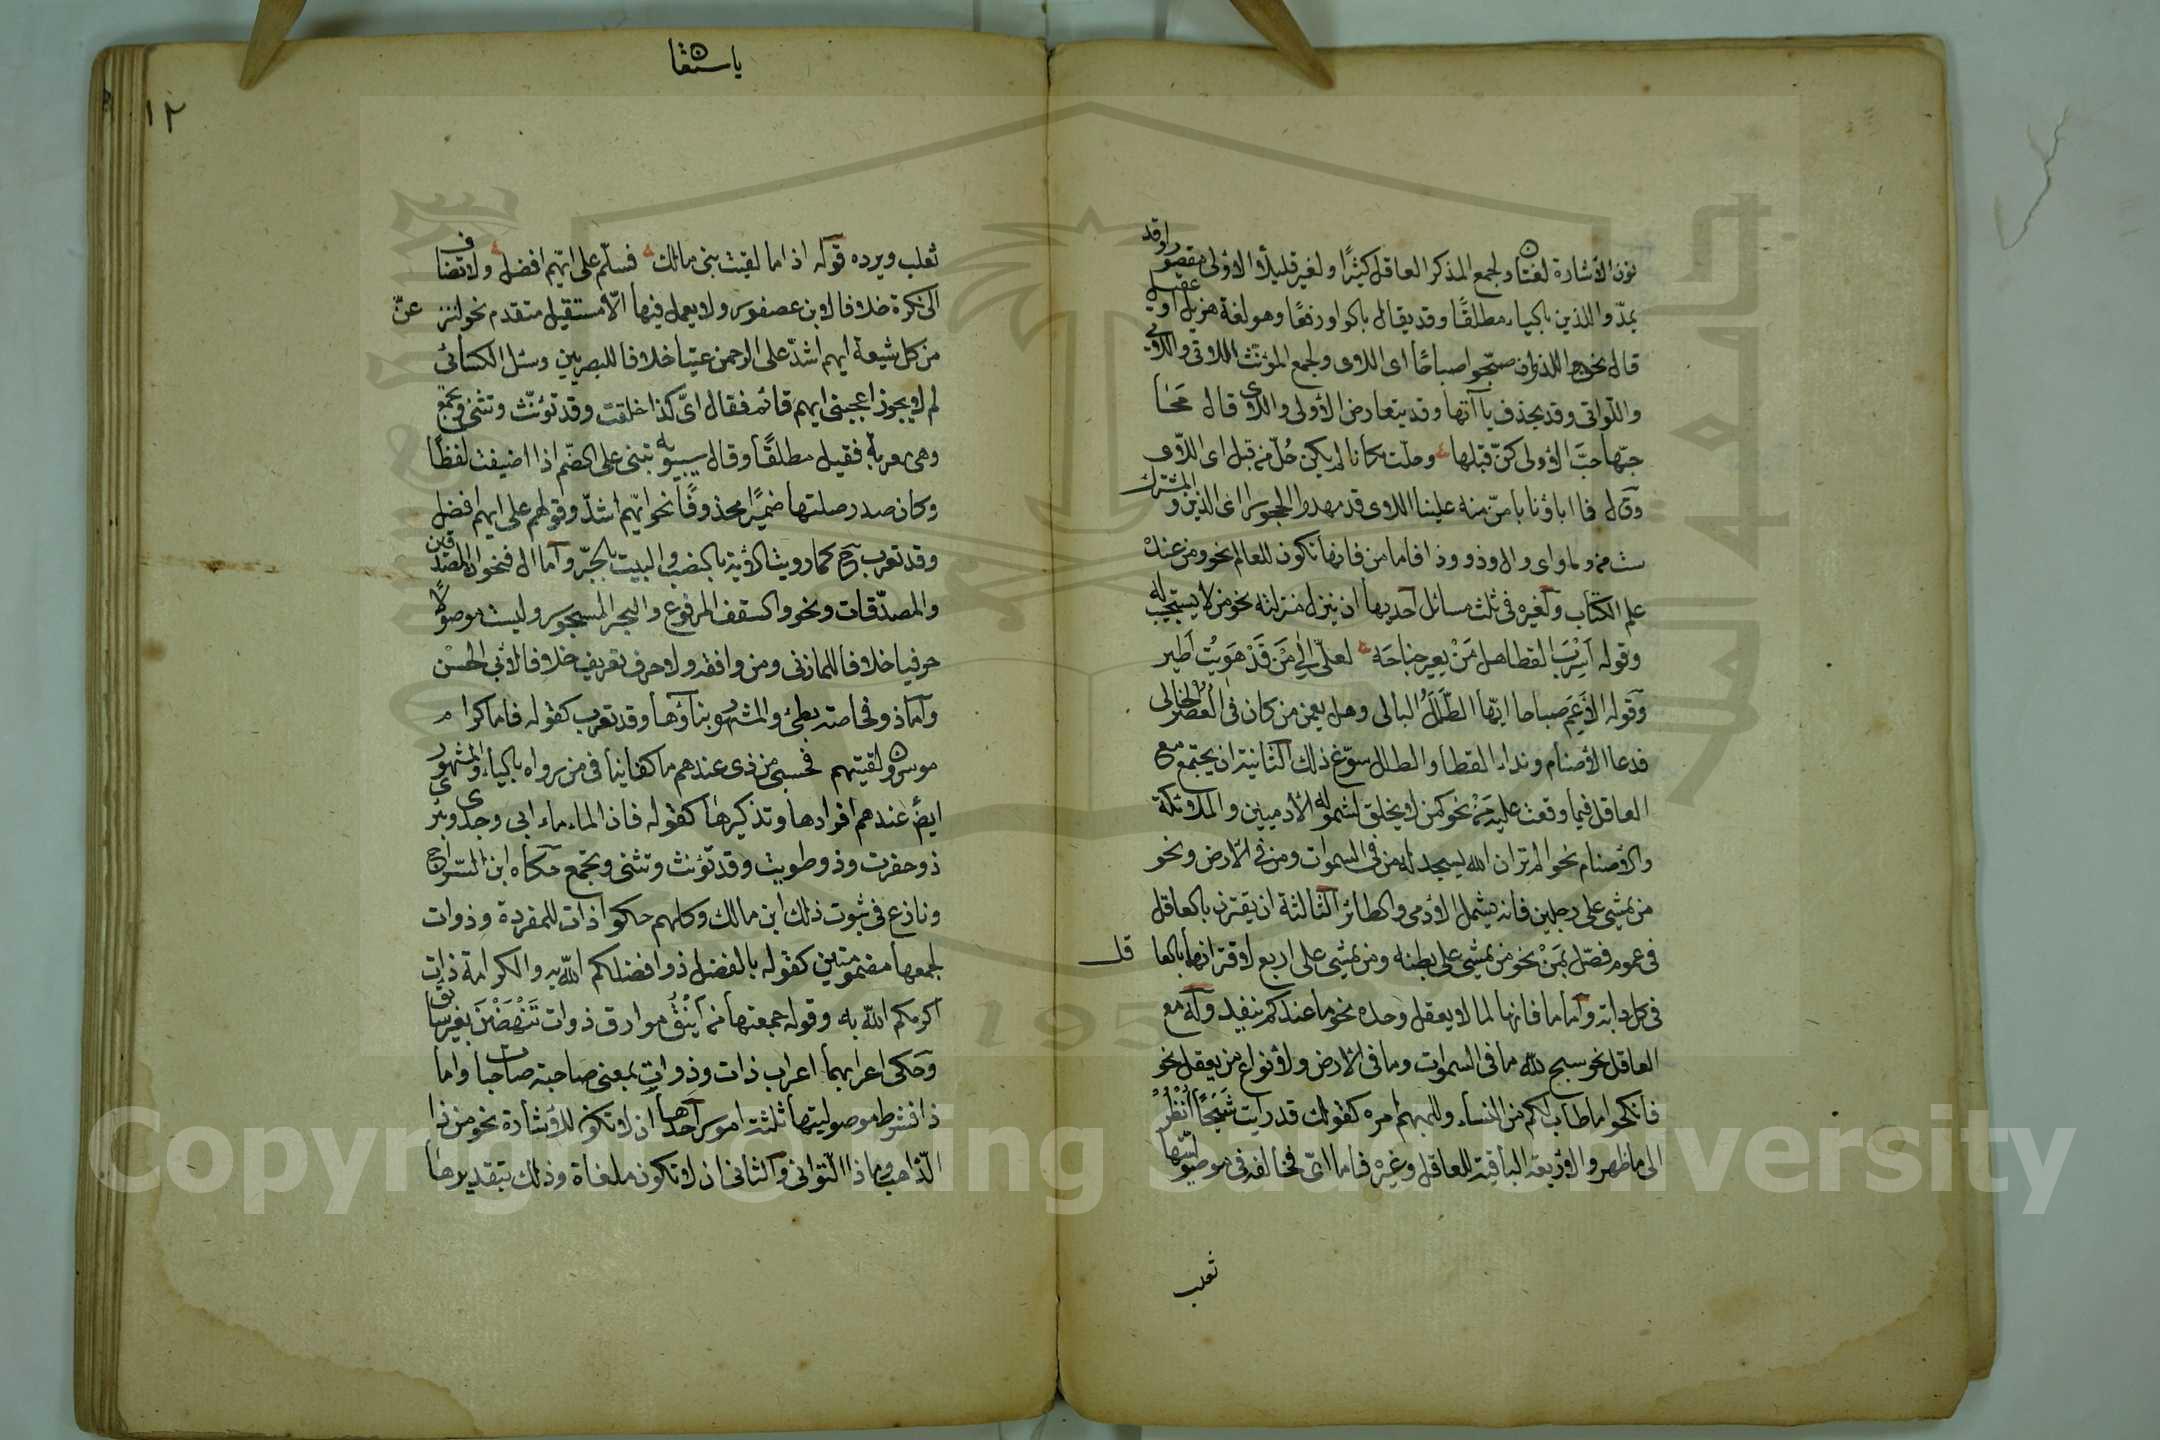 نون الاشارة لغتان ولجمع المذكر العاقل كثيرًا ولغيره قليلا الاولى مقصورا وقد
يمد والذين بالياء مطلقًا وقد يقال بالواو رفعًا وهو لغة هذيل او عقيل
قال نحن اللذون صبّحوا صباحًا اى اللاوى ولجمع المؤنث اللاتى واللائى
واللواتى وقد يحذف ياآتها وقد يتعارض الأولى واللاى قال مَحَا
حبّها حبَّ الأولى كنّ قبلها وحلّت مكانا لم يكن حُلّ من قبل اى اللاّى
وقال فما اباؤنا بامنّ منه علينا اللاوى قد مهدوا الحجورا اى الذين والمشترك
ستة من وما واى وال وذو وذا فاما من فانها تكون للعالم نحو ومن عنده
علم الكتاب ولغيره فى ثلث مسائل احديها ان ينزل منزلته نحو من لا يستجيب له
وقوله أسِرْبَ القطا هل مَنْ يعير جناحَه لعلّى الى مَنْ قَدْ هَوِيتُ أطير
وقوله الا عِم صباحا ايّها الطّلَلُ البالى وهل يعمن من كان فى العُصُرِ الخالى
فدعا الأصنام ونداء القطا والطلل سوّغ ذلك الثانية ان يجتمع مع
العاقل فيما وقعت عليه مَنْ نحو كمن لا يخلق لشموله الآدميين والملائكة
والأصنام نحو الم تر ان الله يسجد له من فى السموات ومن فى الارض ونحو
من يمشى على رجلين فانه يشمل الآدمى والطائر الثالثة ان يقترن بالعاقل
فى عموم فصّل بمَنْ نحو من يمشى على بطنه ومن يمشى على اربع لاقترانها بالعا
قل
فى كل دابة وأما ما فانها لما لا يعقل وحده نحو ما عندكم ينفد وله مع
العاقل نحو سبح لله ما فى السموات وما فى الارض ولأنواع من يعقل نحو
فانكحوا ما طاب لكم من النساء وللمبهم امره كقولك قد رايت شَبَحًا انْظُرْ
الى ما ظهر والاربعة الباقية للعاقل وغيره فاما اىّ فخالف فى موصوليتها
ثعلب
ياستقا
١٢
ثعلب ويرده قوله اذا ما لقيت بنى مالك فسلّم على ايّهم افضل ولا تضاف
الى نكرة خلافا لابن عصفور ولا يعمل فيها الّا مستقبل متقدم نحو لننز
عنّ
من كل شيعة ايهم اشدّ على الرحمن عتيا خلافا للبصريين وسئل الكسائى
لم لا يجوز اعجبنى ايهم قام فقال اىّ كذا خلقت وقد تؤنّث وتثنى وتجمع
وهى معربة فقيل مطلقًا وقال سيبويه تبنى على الضّم اذا اضيفت لفظًا
وكان صدر صلتها ضميرًا محذوفًا نحو ايّهم اشدّ وقولهم على ايهم افضل
وقد تعرب ح كما رويت الآية بالنصب والبيت بالجرّ وأما ال فنحو ان المصدقين
والمصدّقات ونحو والسقف المرفوع والبحر المسجور وليست موصولا
حرفيا خلافا للمازنى ومن وافقه ولا حرف تعريف خلافا لأبى الحسن
وأما ذو فخاصة بطئ والمشهور بناؤها وقد تعرب كقوله فاما كرام
موسرون لقيتهم فحسبى من ذى عندهم ما كفانيا فى من رواه بالياء والمشهور
ايضً عندهم افرادها وتذكيرها كقوله فان الماء ماء ابى وجدى وبئرى
ذو حفرت وذو طويت وقد تؤنث وتثنى وتجمع حكاه ابن السّراج
ونازع فى ثبوت ذلك ابن مالك وكلهم حكوا ذات للمفردة وذوات
لجمعها مضمومتين كقوله بالفضل ذو افضلكم اللّه به والكرامة ذات
اكرمكم اللّه به وقوله جمعتها من أينُقٍ موارق ذوات يَنْهَضْنَ بغير سائق
وحكى اعرابهما اعراب ذات وذوات بمعنى صاحبة وصاحبات واما
ذا فشرط موصوليتها ثلثة امور احدها ان لا تكون للاشارة نحو من ذا
الذّاهب وما ذا التوانى والثانى ان لا تكون ملغاة وذلك بتقديرها
Copyright © King Saud University